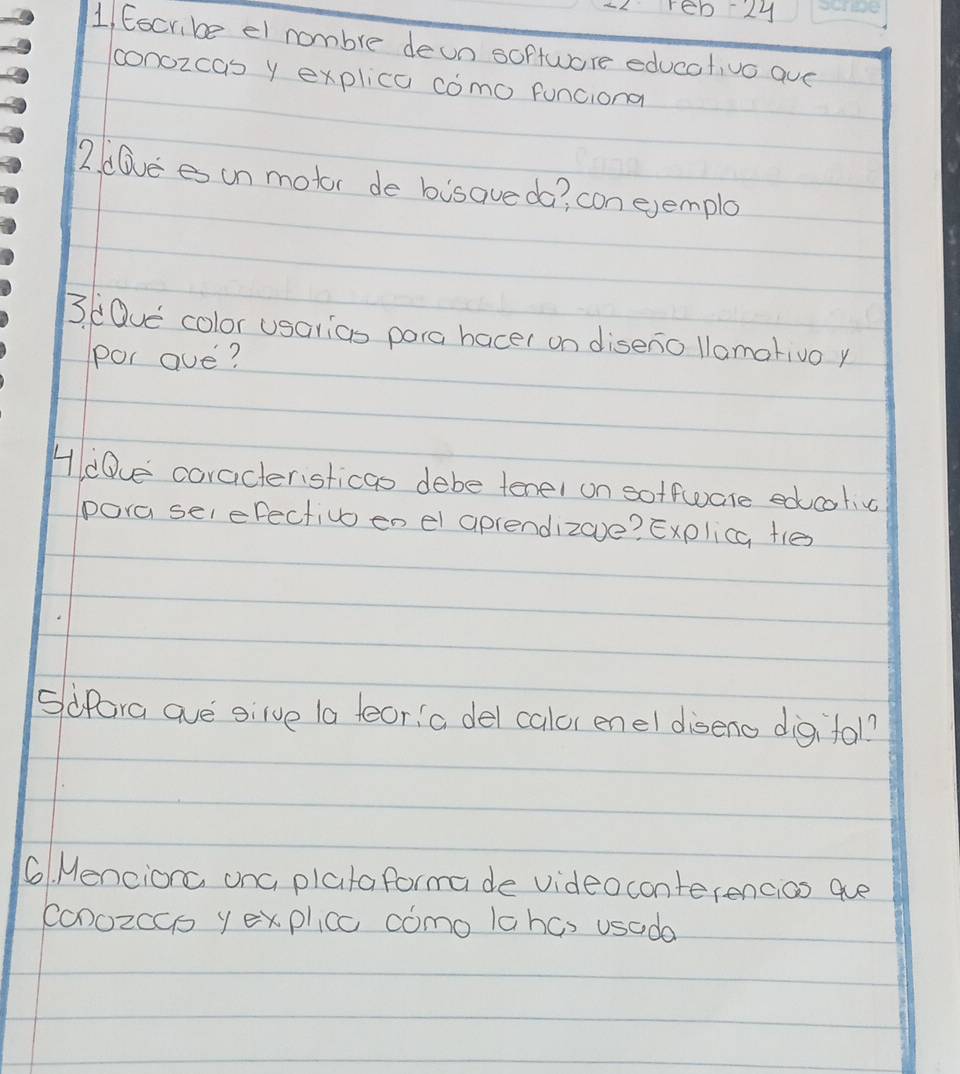 Feb - 24
scribe
1. Escribe el nombre de un software educativo que
conozcas y explica cómo funciona
2. ¿Qué es un motor de búsqueda?, con ejemplo
3. ¿Qué color usarias para hacer un diseño llamativo y
por qué?
4. ¿Qué caracteristicas debe tener un sotfware educativo
para ser efectivo en el aprendizaje? Explica tres
5. ¿Para qué sirve la teoría del calor en el diseno digital?
6. Menciona una plataforma de videoconferencias que
conozcas y explica cómo la has usada